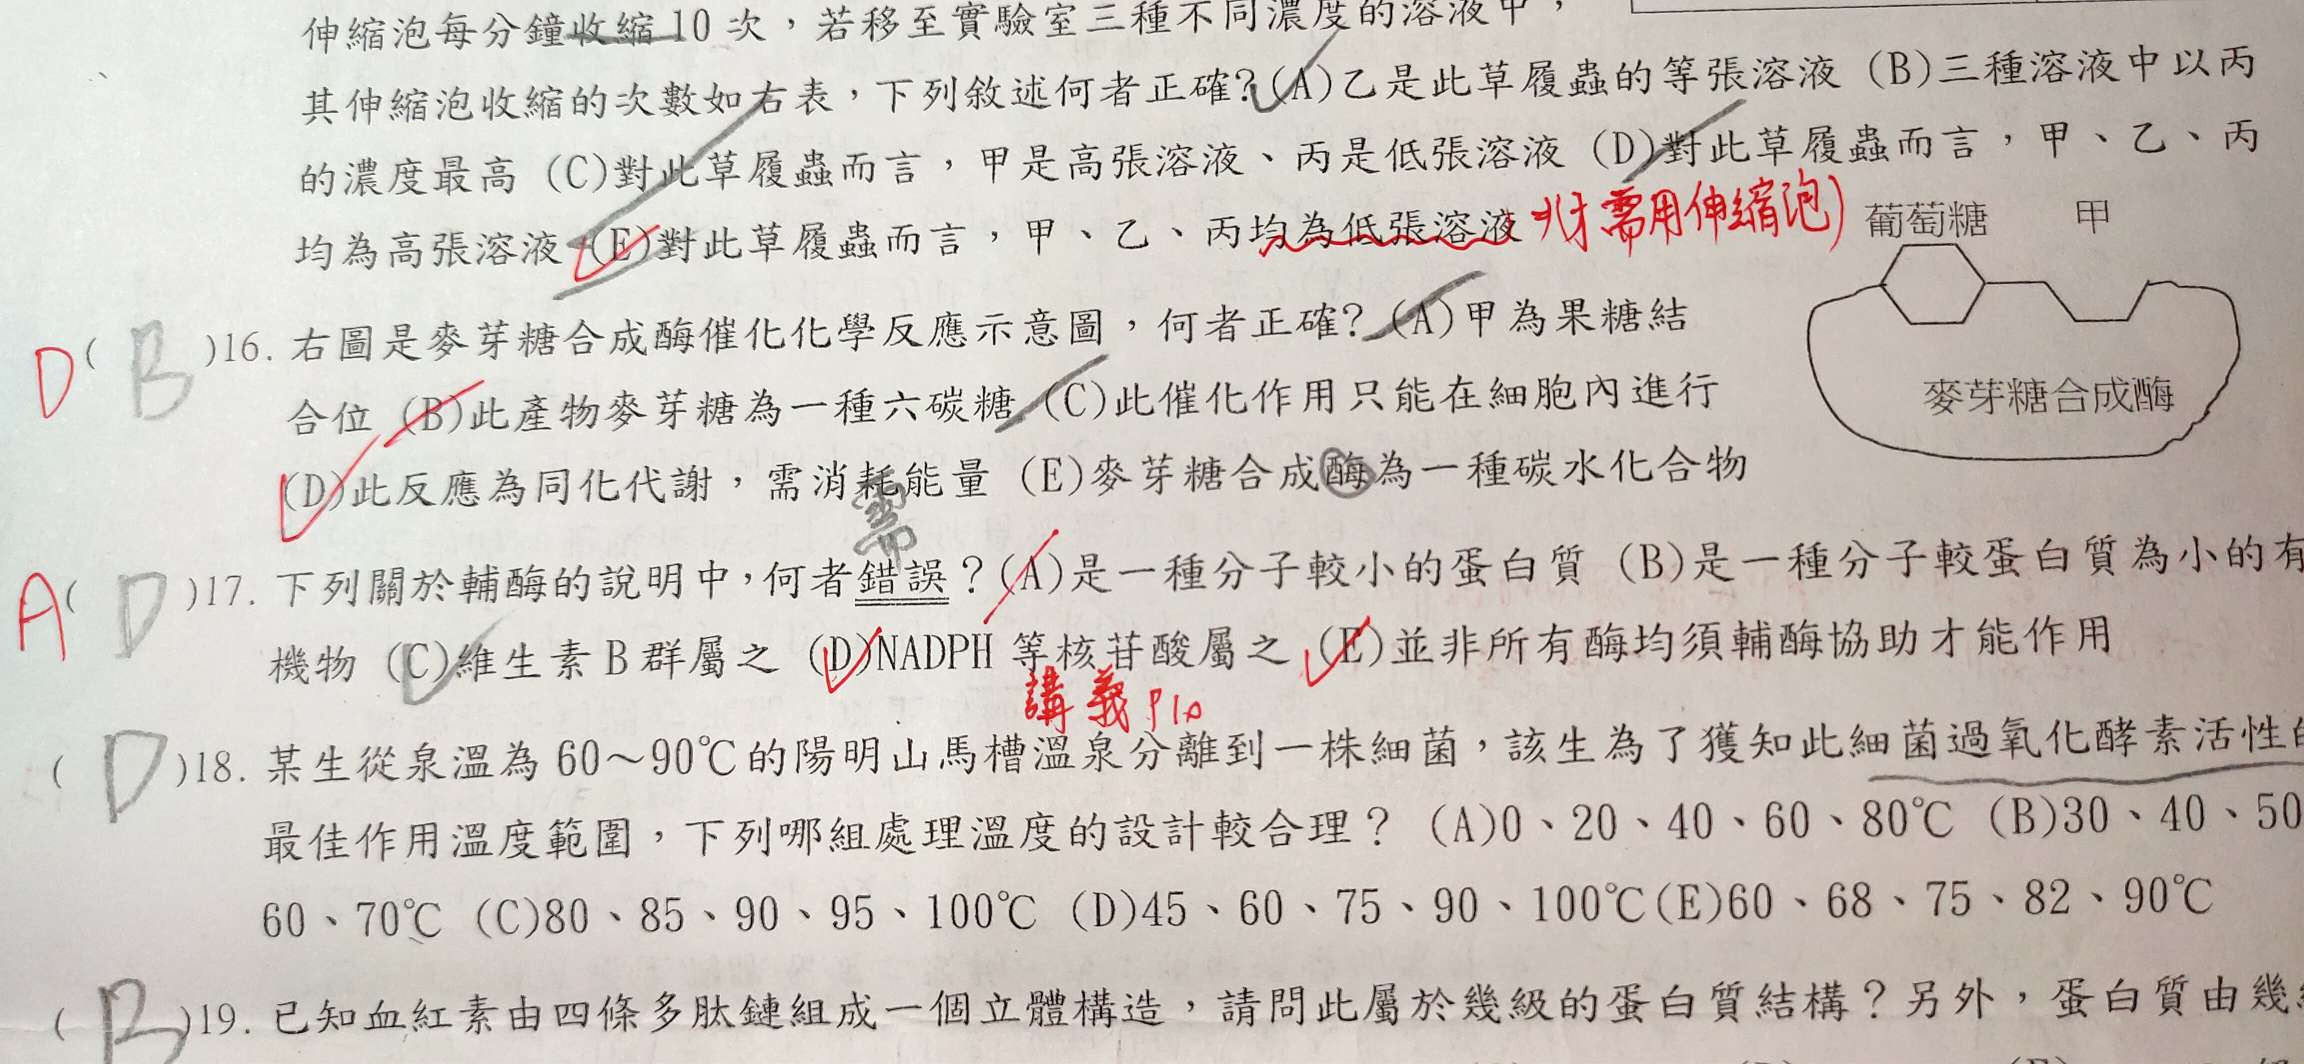 伸縮泡每分鐘收縮10次，若移至實驗室三種不同濃度的溶液中，
其伸縮泡收縮的次數如右表，下列敘述何者正確？(A)乙是此草履蟲的等張溶液 (B)三種溶液中以丙
的濃度最高 (C)對此草履蟲而言，甲是高張溶液、丙是低張溶液 (D)對此草履蟲而言，甲、乙、丙
均為高張溶液 (E)對此草履蟲而言，甲、乙、丙均為低張溶液 (才需用伸縮泡)
葡萄糖 甲
麥芽糖合成酶
D( B )16. 右圖是麥芽糖合成酶催化化學反應示意圖，何者正確？(A)甲為果糖結
合位 (B)此產物麥芽糖為一種六碳糖 (C)此催化作用只能在細胞內進行
(D)此反應為同化代謝，需消耗能量 (E)麥芽糖合成酶為一種碳水化合物
需
A( D )17. 下列關於輔酶的說明中，何者錯誤？(A)是一種分子較小的蛋白質 (B)是一種分子較蛋白質為小的有
機物 (C)維生素B群屬之 (D)NADPH 等核苷酸屬之 (E)並非所有酶均須輔酶協助才能作用
講義 P10
( D )18. 某生從泉溫為 60～90℃的陽明山馬槽溫泉分離到一株細菌，該生為了獲知此細菌過氧化酵素活性的
最佳作用溫度範圍，下列哪組處理溫度的設計較合理？ (A)0、20、40、60、80℃ (B)30、40、50
60、70℃ (C)80、85、90、95、100℃ (D)45、60、75、90、100℃(E)60、68、75、82、90℃
( B )19. 已知血紅素由四條多肽鏈組成一個立體構造，請問此屬於幾級的蛋白質結構？另外，蛋白質由幾